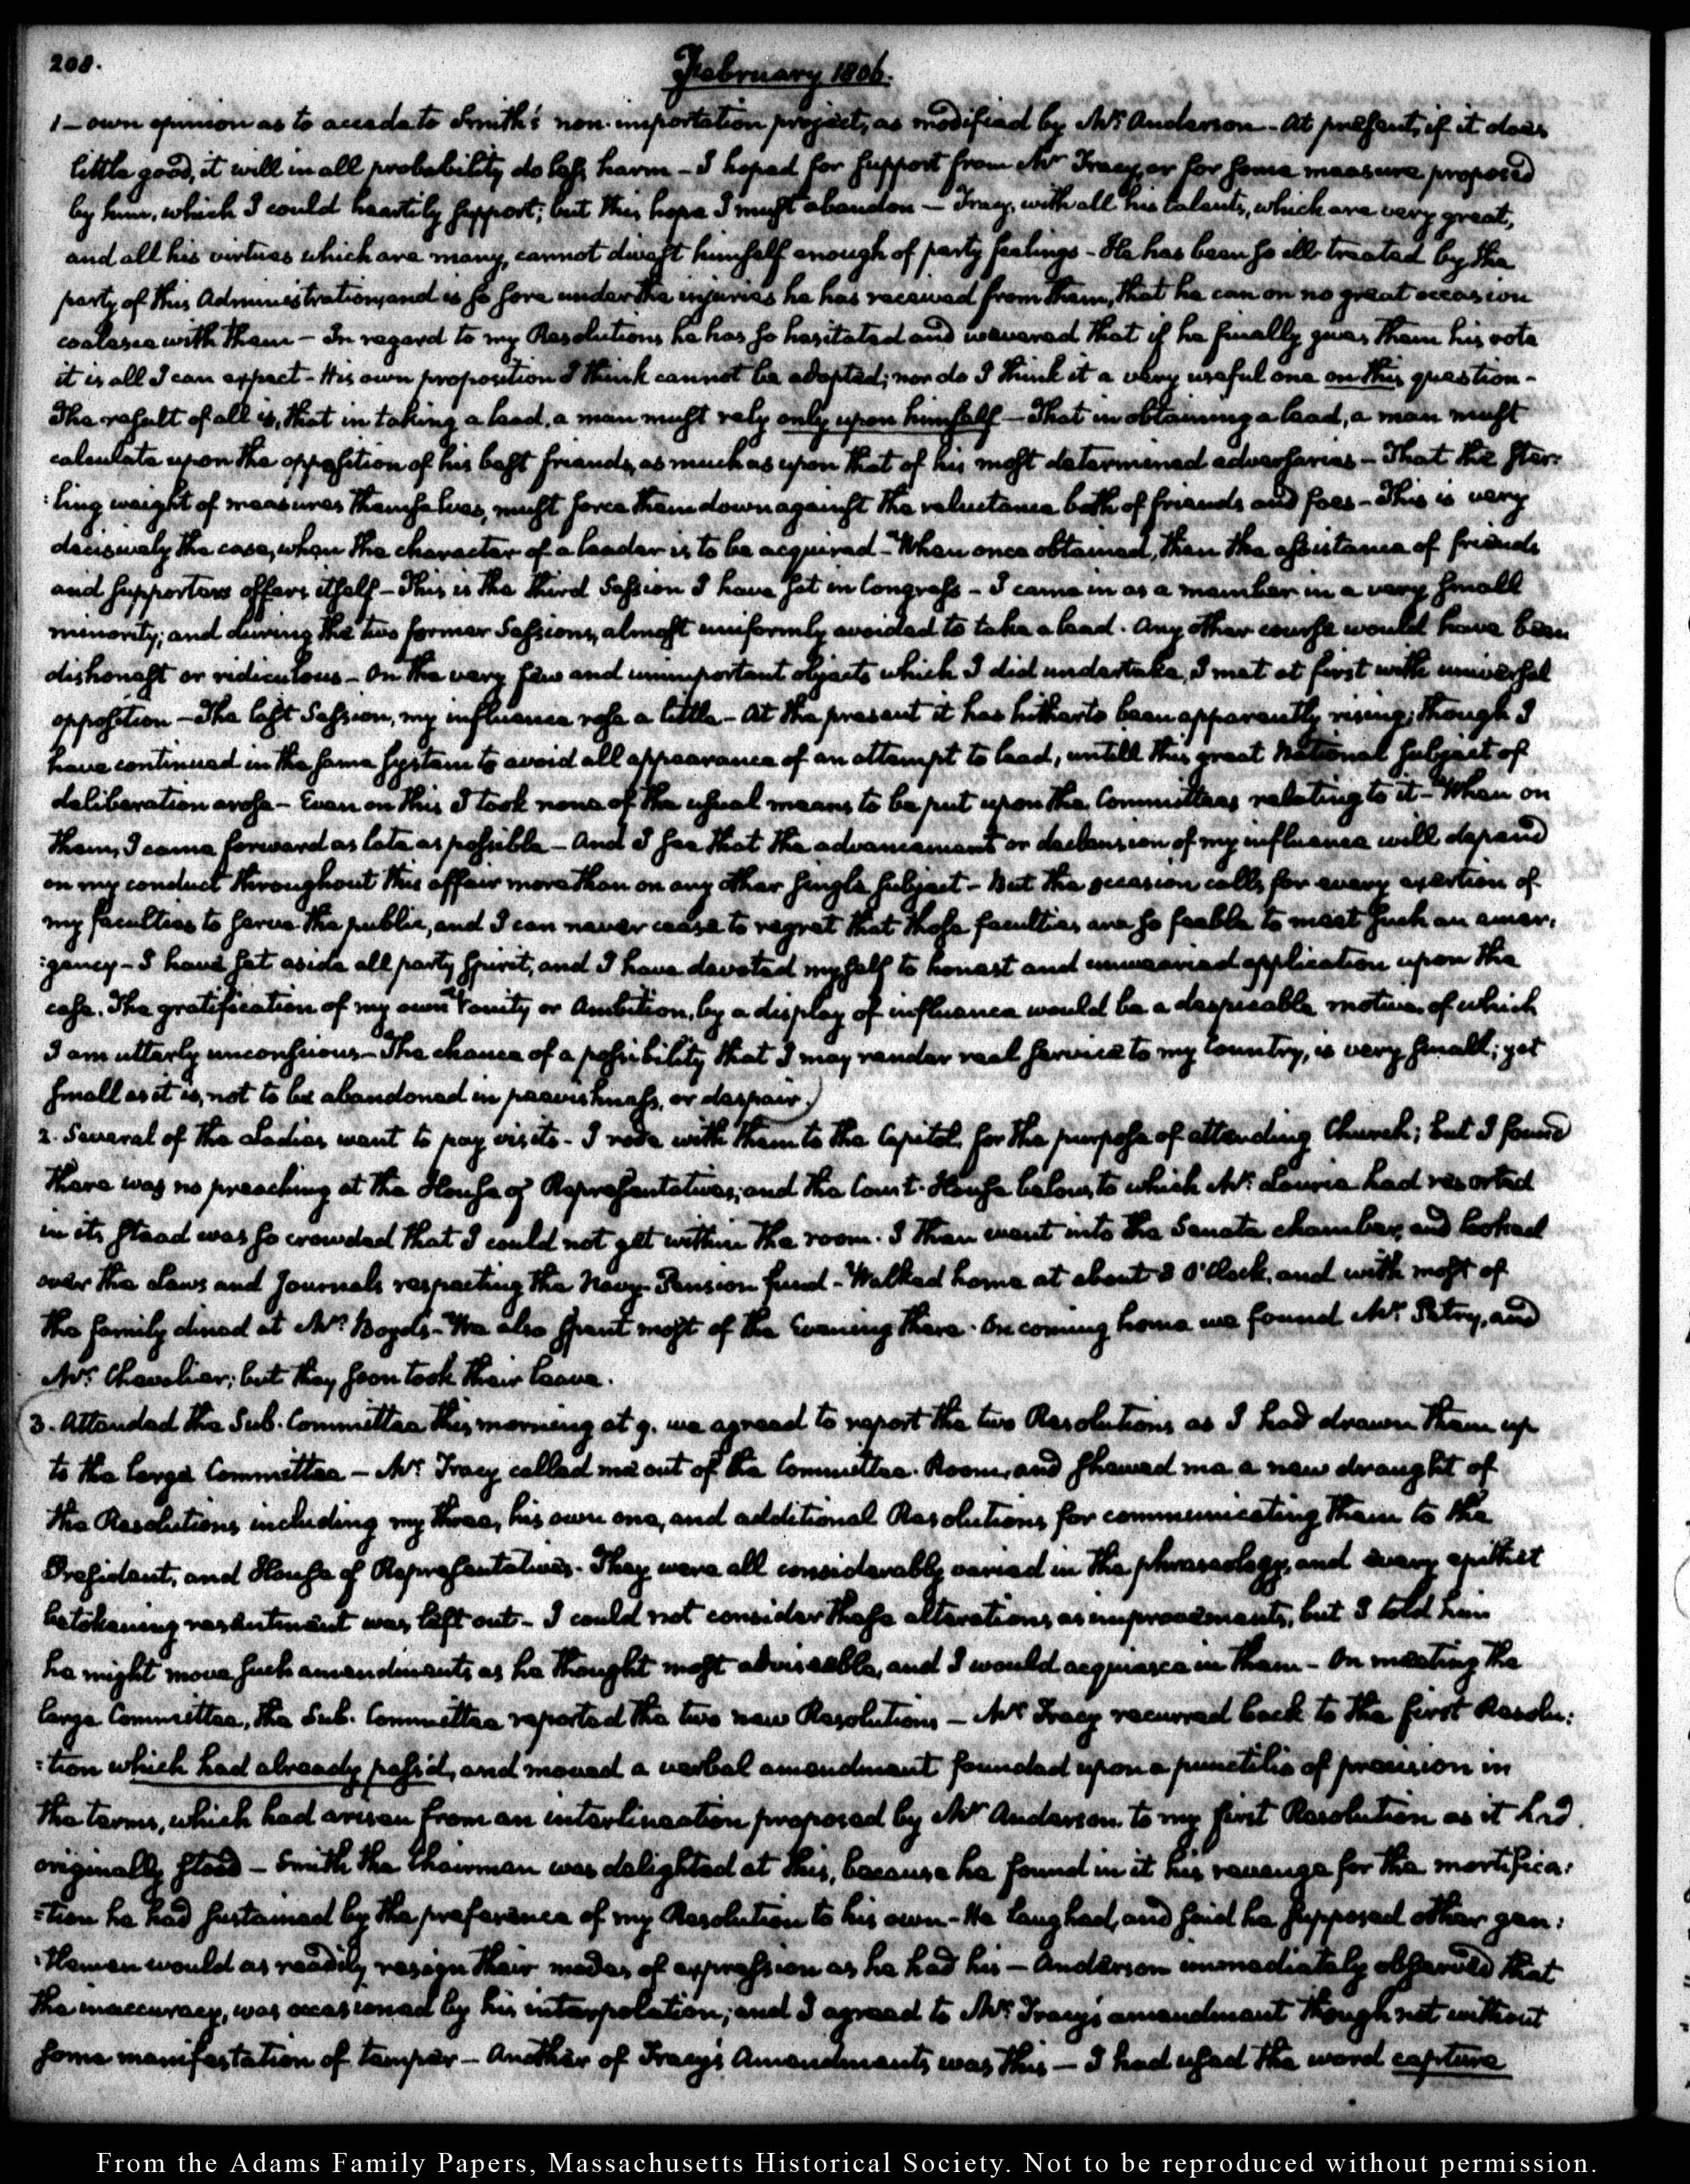 208.
February 1806.
1 - own opinion as to accede to Smith's non-importation project, as modified by Mr. Anderson - At present, if it does
little good, it will in all probability do less harm - I hoped for support from Mr. Tracy, or for some measure proposed
by him, which I could heartily support; but this hope I must abandon - Tracy, with all his talents, which are very great,
and all his virtues which are many, cannot divest himself enough of party feelings - He has been so ill-treated by the
party of this Administration, and is so sore under the injuries he has received from them, that he can on no great occasion
coalesce with them - In regard to my Resolutions he has so hesitated and wavered that if he finally gives them his vote
it is all I can expect - His own proposition I think cannot be adopted; nor do I think it a very useful one on this question -
The result of all is, that in taking a lead, a man must rely only upon himself - That in obtaining a lead, a man must
calculate upon the opposition of his best friends, as much as upon that of his most determined adversaries - That the ster:
:ling weight of measures themselves, must force them down against the reluctance both of friends and foes - This is very
decisively the case, when the character of a leader is to be acquired - When once obtained, then the assistance of friends
and supporters offers itself - This is the third Session I have sat in Congress - I came in as a member in a very small
minority; and during the two former Sessions, almost uniformly avoided to take a lead. Any other course would have been
dishonest or ridiculous - On the very few and unimportant objects which I did undertake, I met at first with universal
opposition - The last Session, my influence rose a little - At the present it has hitherto been apparently rising; though I
have continued in the same system to avoid all appearance of an attempt to lead, untill this great National subject of
deliberation arose - Even on this I took none of the usual means to be put upon the Committees relating to it - When on
them, I came forward as late as possible - And I see that the advancement or declension of my influence will depend
on my conduct throughout this affair more than on any other single subject - But the occasion calls for every exertion of
my faculties to serve the public, and I can never cease to regret that those faculties are so feeble to meet such an emer:
:gency - I have set aside all party spirit, and I have devoted myself to honest and unwearied application upon the
case. The gratification of my own Vanity or Ambition, by a display of influence would be a despicable motive, of which
I am utterly unconscious - The chance of a possibility that I may render real service to my Country, is very small; yet
small as it is, not to be abandoned in peevishness, or despair.)
2. Several of the Ladies went to pay visits - I rode with them to the Capitol, for the purpose of attending Church; but I found
there was no preaching at the House of Representatives; and the Court-House below, to which Mr. Laurie had resorted
in its stead was so crowded that I could not get within the room. I then went into the Senate chamber, and looked
over the Laws and Journals respecting the Navy-Pension fund - Walked home at about 3 O'Clock, and with most of
the family dined at Mr. Boyd's - We also spent most of the Evening there. On coming home we found Mr. Petry, and
Mr. Chevalier; but they soon took their leave.
3. Attended the Sub-Committee this morning at 9. we agreed to report the two Resolutions as I had drawn them up
to the large Committee - Mr. Tracy called me out of the Committee-Room, and shewed me a new draught of
the Resolutions including my three, his own one, and additional Resolutions for communicating them to the
President, and House of Representatives. They were all considerably varied in the phraseology, and every epithet
betokening resentment was left out - I could not consider these alterations as improvements, but I told him
he might move such amendments as he thought most adviseable, and I would acquiesce in them - On meeting the
large Committee, the Sub-Committee reported the two new Resolutions - Mr. Tracy recurred back to the first Resolu:
:tion which had already pass'd, and moved a verbal amendment founded upon a punctilio of precision in
the terms, which had arisen from an interlineation proposed by Mr. Anderson to my first Resolution as it had
originally stood - Smith the Chairman was delighted at this, because he found in it his revenge for the mortifica:
:tion he had sustained by the preference of my Resolution to his own - He laughed, and said he supposed other gen:
:tlemen would as readily resign their modes of expression as he had his - Anderson immediately observed that
the inaccuracy, was occasioned by his interpolation; and I agreed to Mr. Tracy's amendment though not without
some manifestation of temper - Another of Tracy's Amendments was this - I had used the word capture
From the Adams Family Papers, Massachusetts Historical Society. Not to be reproduced without permission.